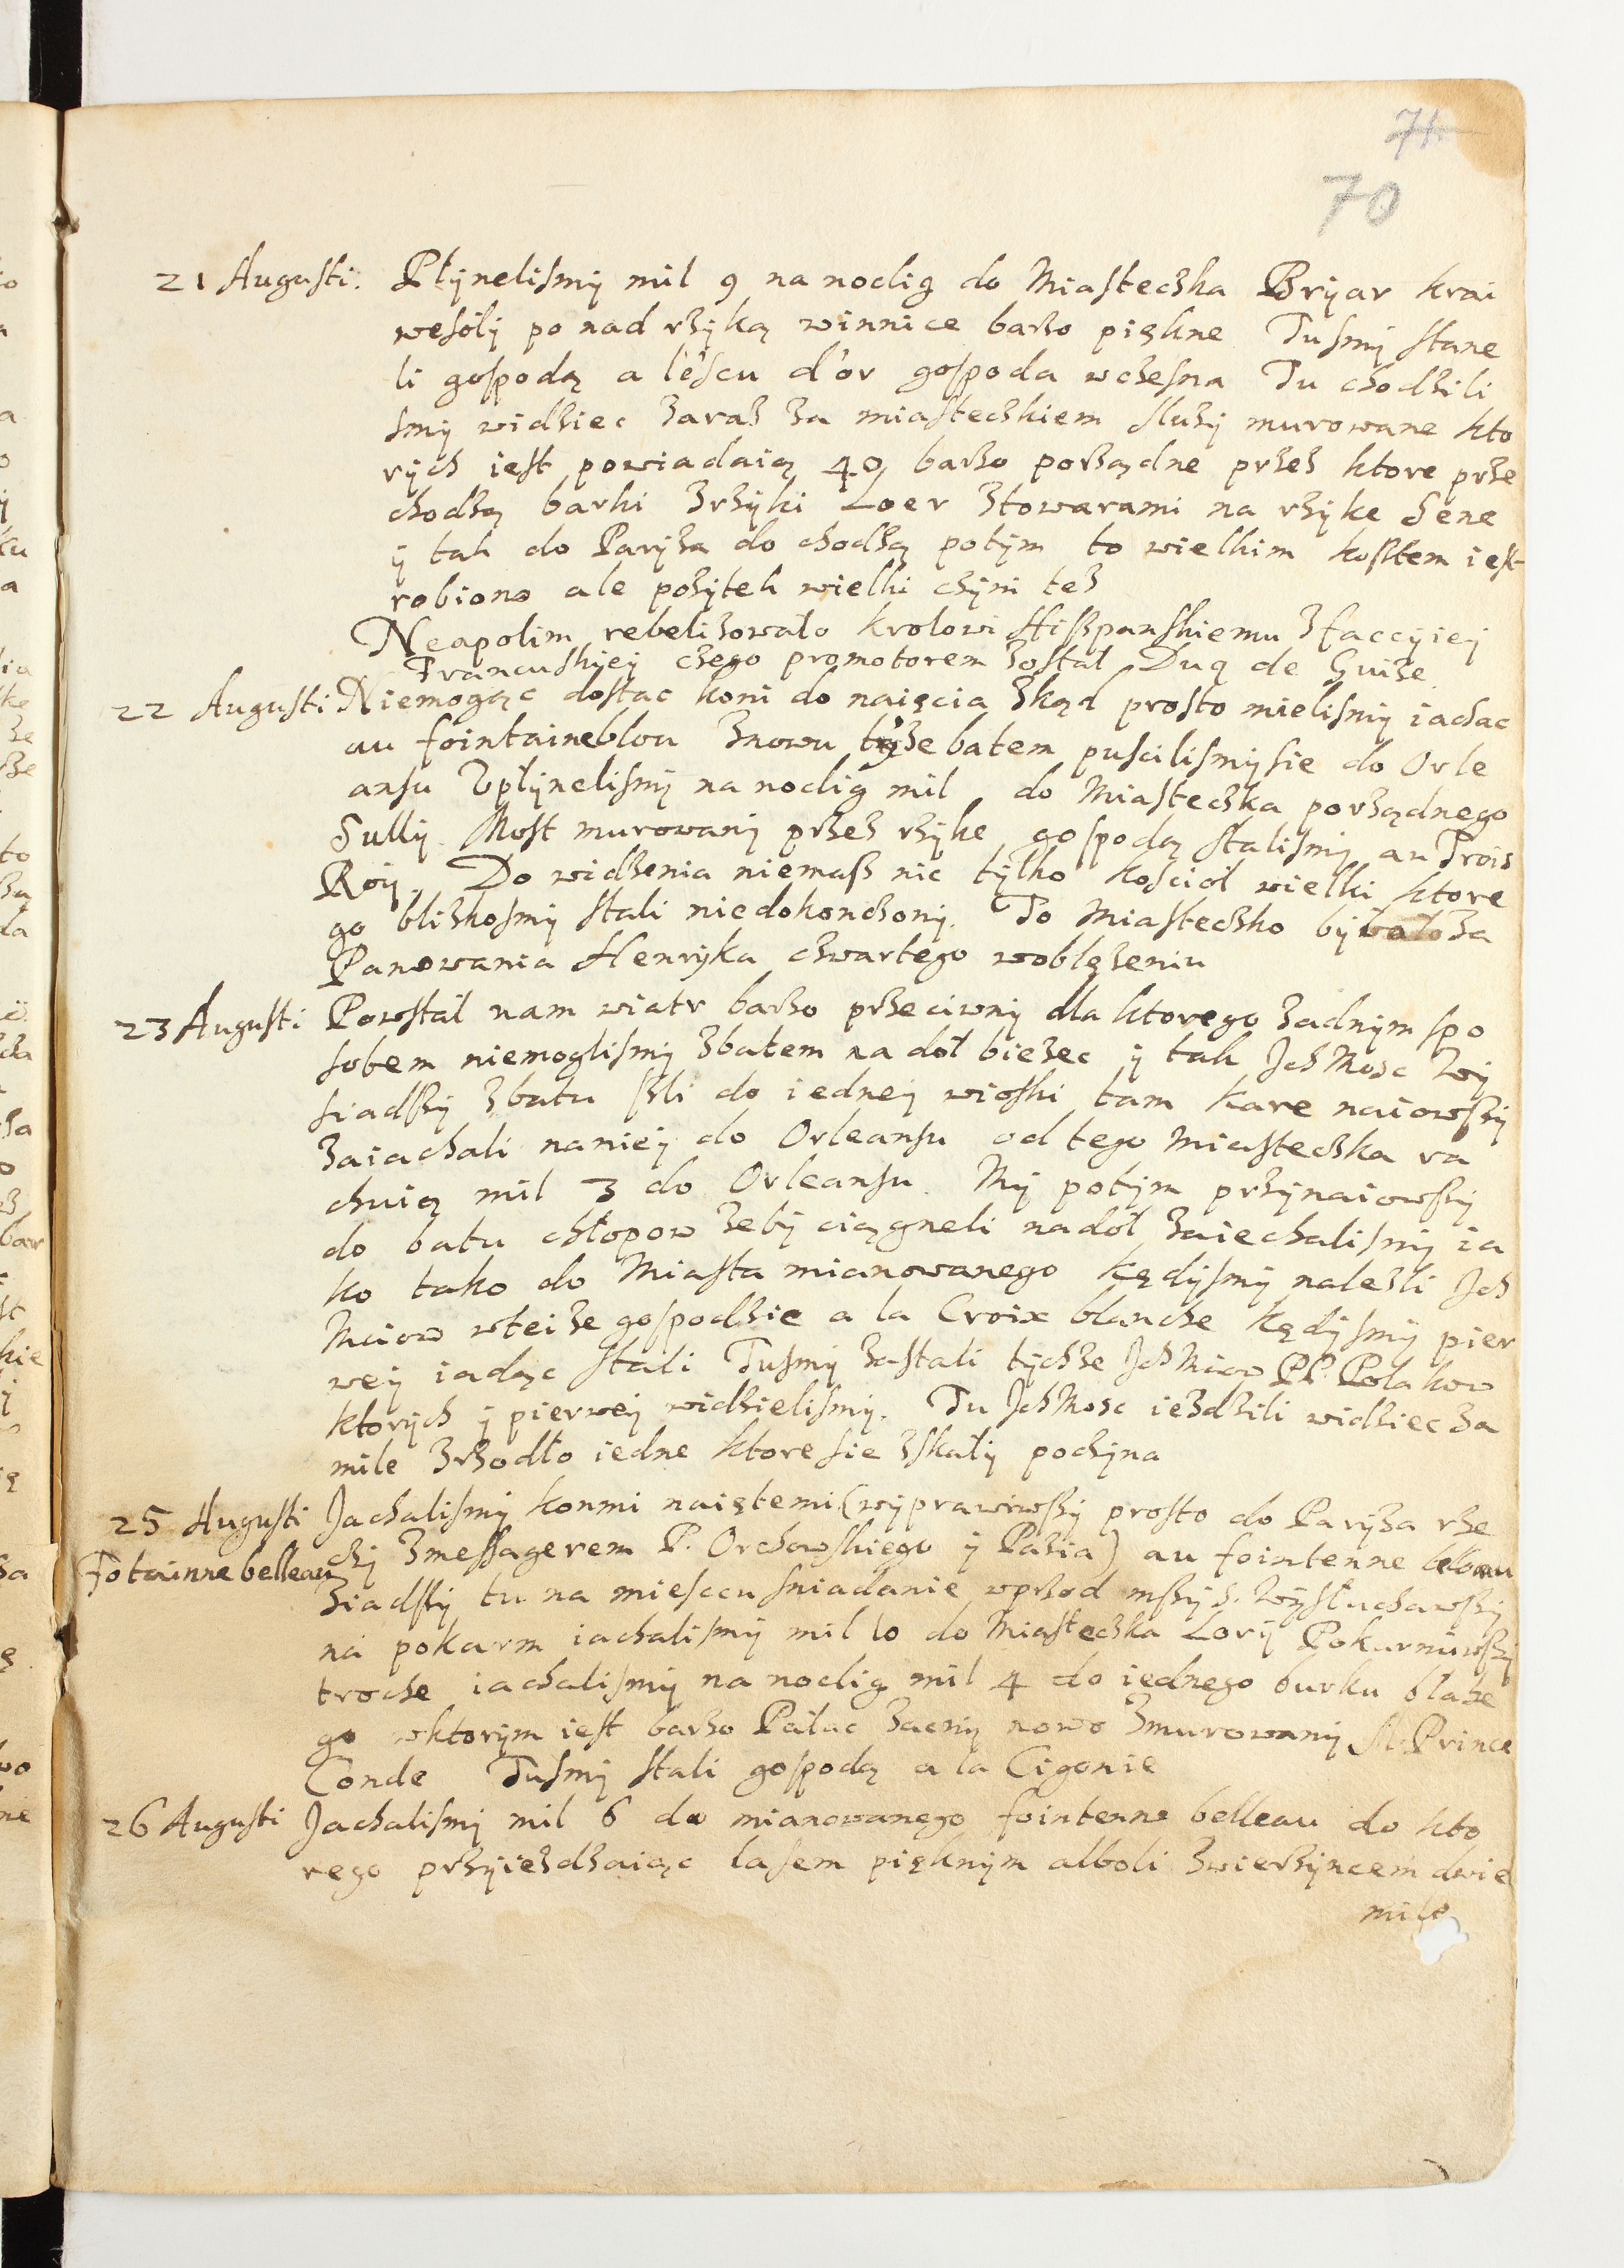 71
70
21 Augusti. Płÿnelismÿ mil 9 na noclig do Miasteczka Brÿar krai
wesołÿ ponad rzÿką winnice barzo piękne Tusmÿ stane
li gospodą a l'escu d'or gospoda wczesna Tu chodzili
smÿ widziec zaraz za miasteczkiem sluzÿ murowane kto
rÿch iest powiadaią 40 barzo porządne przez ktore prze
chodzą barki z rzÿki Loer z towarami na rzÿke Sene
ÿ tak do Parÿza dochodzą potÿm to wielkim kosztem iest
robiono ale pozÿtek wielki czÿni tez
Neapolim rebelizowało krolowi Hiszpanskiemu z faccÿieÿ
Francuskieÿ czego promotorem został Duq de Guise
22 Augusti Niemogąc dostac koni do naięcia zkąd prosto mielismÿ iachac
au fointaineblou znowu tÿze batem puscilismÿ sie do Orle
ansu Upłÿnelismÿ na noclig mil do Miasteczka porządnego
Sullÿ. Most murowanÿ przez rzÿke gospodą stalismÿ au Trois
Roÿ. Do widzenia niemasz nic tÿlko kościoł wielki ktore
go blizkosmÿ stali niedokonczonÿ. To Miasteczko bÿwało za
Panowania Henrÿka czwartego w oblęzeniu
23 Augusti Powstał nam wiatr barzo przeciwnÿ dla ktorego zadnÿm spo
sobem niemoglismÿ z batem na doł biezec ÿ tak JchMosc wÿ
siadszÿ z batu szli do iedneÿ wioski tam kare naiowszÿ
zaiachali na nieÿ do Orleansu od tego Miasteczka ra
chuią mil 3 do Orleansu. Mÿ potÿm przÿnaiowszÿ
do batu chłopow zebÿ ciągneli na doł zaiechalismÿ ia
ko tako do Miasta mianowanego kędÿsmÿ nalezli Jch
Mciow w teize gospodzie a la Croix blanche kędÿsmÿ pier
weÿ iadąc stali Tusmÿ zastali tÿchze JchMciow PP. Polakow
ktorÿch ÿ pierweÿ widzielismÿ. Tu JchMosc iezdzili widziec za
mile zrzodło iedne ktore sie z skałÿ poczÿna
25 Augusti Jachalismÿ konmi naiętemi (wÿprawiwszÿ prosto do Parÿza rze
Fotainne belleau czÿ z messagerem P. Orchowskiego ÿ Pazia) au fointenne belleau
ziadszÿ tu na miescu sniadanie wprzod mszÿ S. wÿsłuchawszÿ
na pokarm iachalismÿ mil 10 do Miasteczka Lorÿ Pokarmiwszÿ
troche iachalismÿ na noclig mil 4 do iednego burku błahe
go w ktorÿm iest barzo Pałac zacnÿ nowo zmurowanÿ M. Prince
Conde Tusmÿ stali gospodą a la Cigonie
26 Augusti Jachalismÿ mil 6 do mianowanego fointenne belleau do kto
rego przÿiezdzaiąc lasem pięknÿm alboli zwierzÿncem dwie
mile